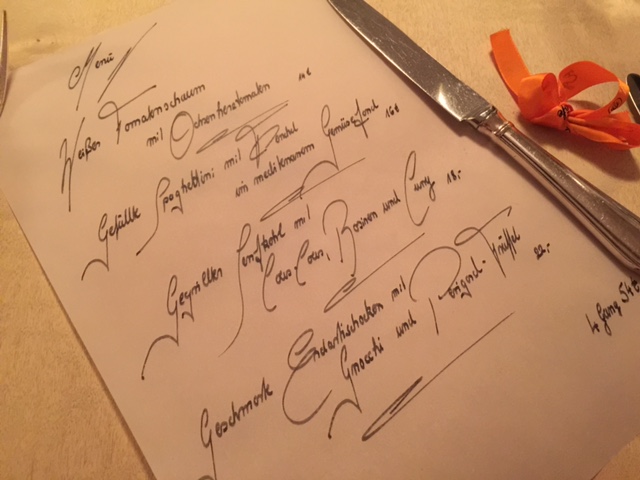 Menü
Weißer Tomatenschaum
mit Ochsenherztomaten 14€
Gefüllte Spaghettini mit Fenchel
in mediterranem Gemüsefond 16€
Gegrillter Senfkohl mit
Cous Cous, Rosinen und Curry 18.-
Geschmorte Erdartischocken mit
Gnocchi und Perigord-Trüffel 22.-
4 Gang 54€